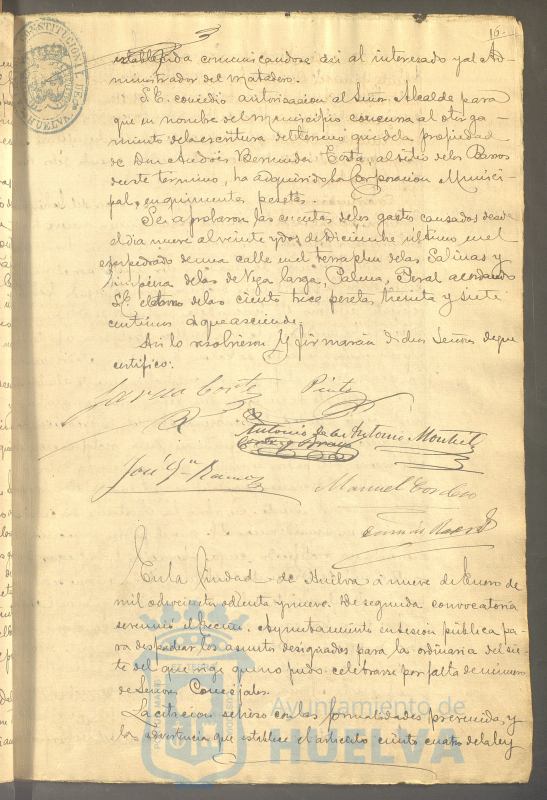 16
establecida comunicandose asi al interesado y al Ad-
ministrador del matadero.
S.E. concedio autorizacion al Señor Alcalde para
que en nombre del Municipio concurra al otorga-
miento de la escritura del terreno que de la propiedad
de Don Andrés Bermudez Costa, al sitio de los Barros
de este termino, ha adquirido la Corporacion Munici-
pal, en quinientas pesetas.
Se aprobaron las cuentas de los gastos causados desde
el dia nueve al veinte y dos de Diciembre ultimo en el
empedrado de una calle en el terraplen de las Salinas y
limpieza de las de Vega larga, Palma, Peral acordando
S.E. el abono de las ciento trece pesetas treinta y siete
centimos á que asciende.
Asi lo resolvieron y firmarán dichos Señores de que
certifico:
Garcia Corte Pinto
Antonio de la Corte y Bravo Antonio Montiel
José Gn Ramos
Manuel Cordero
En la Ciudad de Huelva á nueve de Enero de
mil ochocientos ochenta y nueve. De segunda convocatoria
se reunió el Excmo. Ayuntamiento en sesion pública pa-
ra despachar los asuntos designados para la ordinaria del sie-
te del que rige que no pudo celebrarse por falta de número
de Señores Concejales.
La citacion se hizo con las formalidades prevenidas, y
la advertencia que establece el articulo ciento cuatro de la ley
Ayuntamiento de
HUELVA